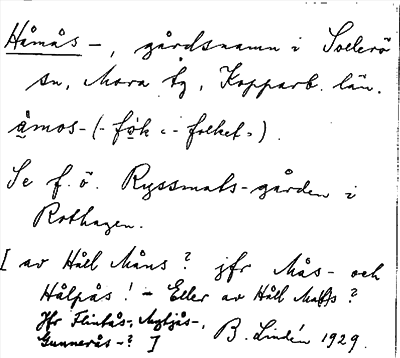 Håmås-, gårdsnamn i Sollerö
sn, Mora tg, Kopparb. län.
åmos- (- fok «- folket»).
Se f. ö. Ryssmats-gården i
Rothagen.
[ av Håll Måns? jfr Mås- och
Hålpås! - Eller av Håll Mats?
Jfr Flintås-, 
Gunnerås-? ] B. Lindén 1929.